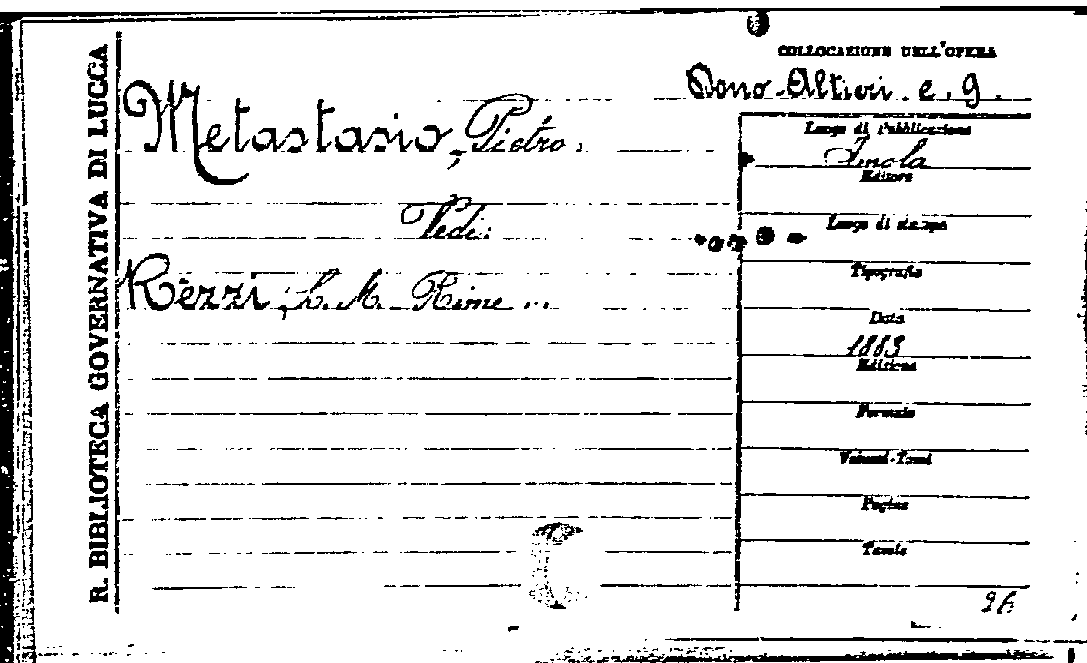 R. BIBLIOTECA GOVERNATIVA DI LUCCA
COLLOCAZIONE DELL'OPERA
Dono Altieri e. 9.
Metastasio, Pietro.
Vedi:
Rezzi, L. M. Rime ...
Luogo di Pubblicazione
Imola
Editore
Luogo di stampa
Tipografia
Data
1883
Edizione
Formato
Volumi-Tomi
Pagine
Tavole
26